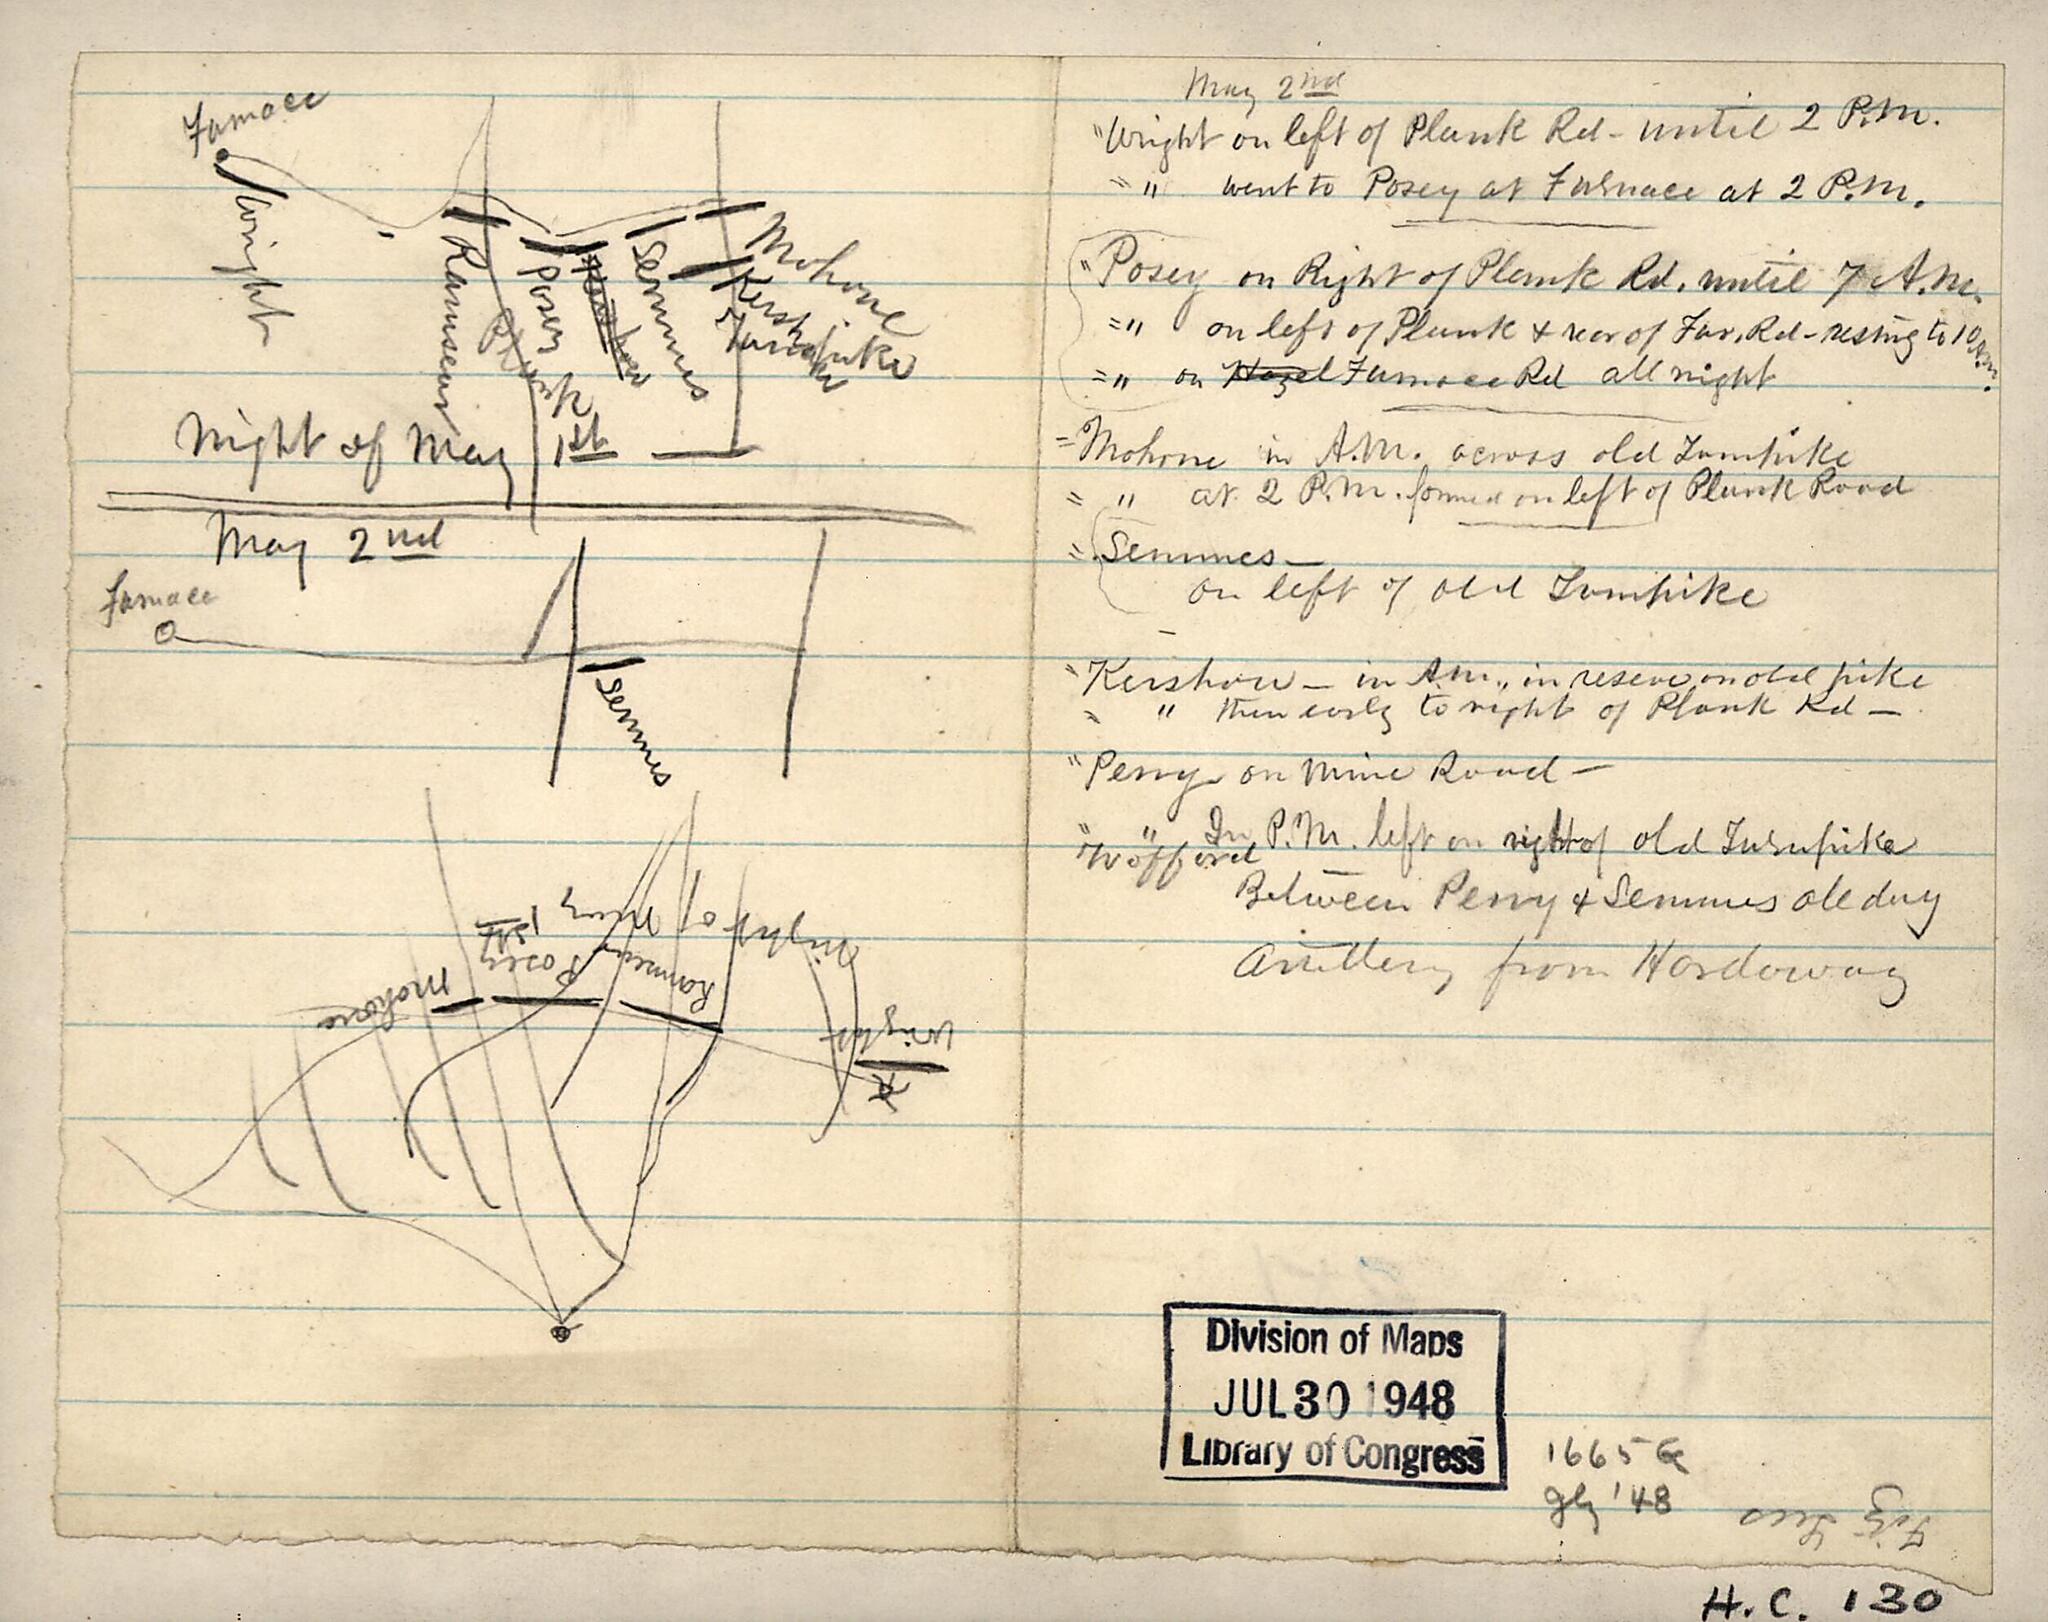 Furnace
Wright
Ramseur
Posey
Plank
Semmes
Mahone
Kershaw
Turnpike
Night of May 1st —
May 2nd
Furnace
Semmes
Night of May 1st
Ramseur
Posey
Mahone
Wright
May 2nd
" Wright on left of Plank Rd - until 2 P.M.
" " went to Posey at Furnace at 2 P.M.
" Posey on Right of Plank Rd. until 7 A.M.
= " on left of Plank & rear of Fur. Rd - resting to 10 A.M.
= " on Hazel Furnace Rd all night
= Mahone in A.M. across old Turnpike
= " at 2 P.M. formed on left of Plank Road
= Semmes —
on left of old Turnpike
" Kershaw — in A.M., in reserve on old pike
" " then early to right of Plank Rd —
" Perry on Mine Road —
" " In P.M. left on right of old Turnpike
" Wofford
Between Perry & Semmes all day
Artillery from Hardaway
Division of Maps
JUL 30 1948
Library of Congress
1665 G
'48
Fitz Lees
H.C. 130